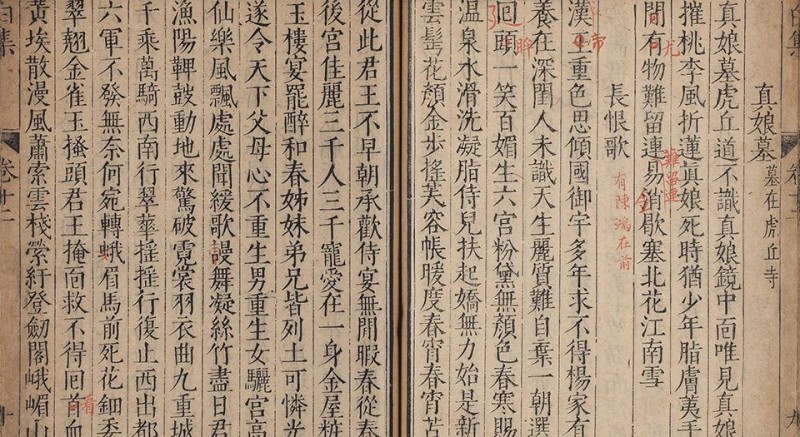 白集
卷十二
九
真娘墓 墓在虎丘寺
真娘墓虎丘道不識真娘鏡中面唯見真娘
摧桃李風折蓮真娘死時猶少年脂膚荑手
間有物難留連易銷歇塞北花江南雪
尤
長恨歌
有陳鴻在前
漢王重色思傾國御宇多年求不得楊家有
帝
養在深閨人未識天生麗質難自棄一朝選
回頭一笑百媚生六宮粉黛無顏色春寒賜
眸
溫泉水滑洗凝脂侍兒扶起嬌無力始是新
雲髻花顏金步搖芙蓉帳暖度春宵春宵苦
從此君王不早朝承歡侍宴無閒暇春從春
後宮佳麗三千人三千寵愛在一身金屋粧
玉樓宴罷醉和春姊妹弟兄皆列土可憐光
遂令天下父母心不重生男重生女驪宮高
仙樂風飄處處聞緩歌謾舞凝絲竹盡日君
漁陽鞞鼓動地來驚破霓裳羽衣曲九重城
千乘萬騎西南行翠華搖搖行復止西出都
六軍不發無奈何宛轉蛾眉馬前死花鈿委
翠翹金雀玉搔頭君王掩面救不得回首血
看
黃埃散漫風蕭索雲棧縈紆登劒閣峨嵋山
白集
卷十二
十